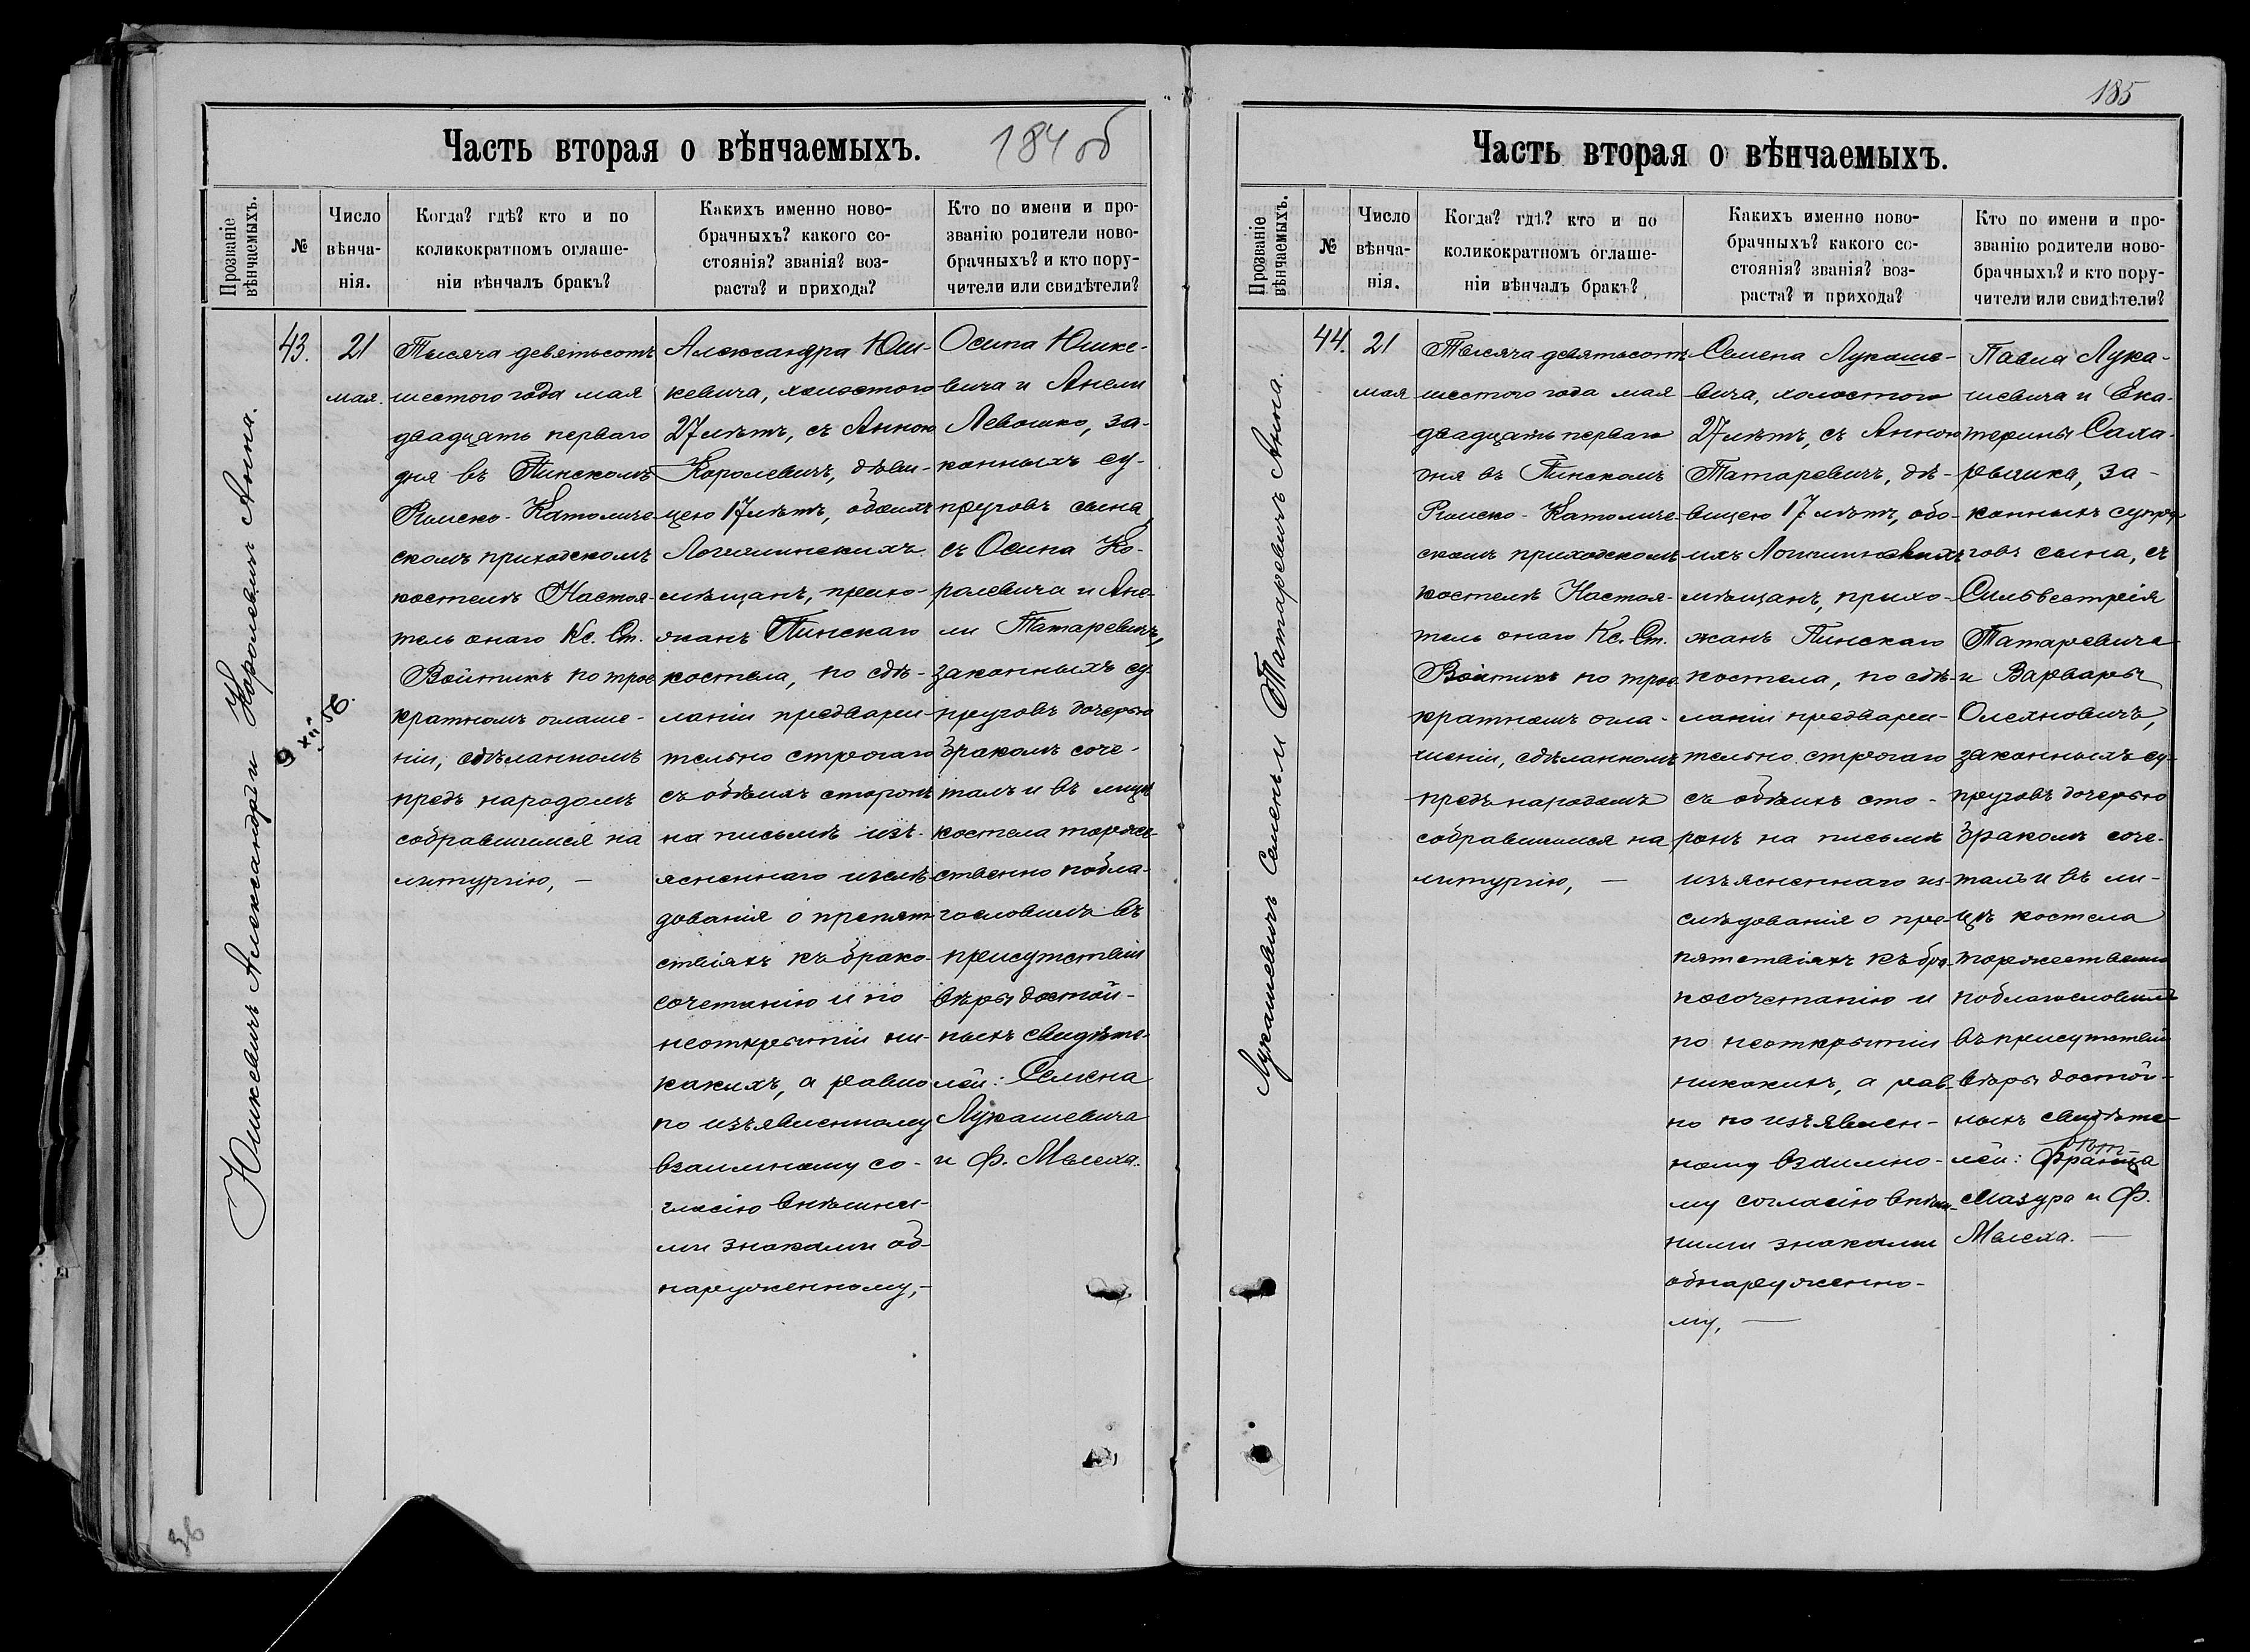 Часть вторая о вѣнчаемыхъ.
184 об
Прозваніе вѣнчаемыхъ.
№
Число вѣнча-нія.
Когда? гдѣ? кто и по
коликократномъ оглаше-
ніи вѣнчалъ бракъ?
Какихъ именно ново-
брачныхъ? какого со-
стоянія? званія? воз-
раста? и прихода?
Кто по имени и про-
званію родители ново-
брачныхъ? и кто пору-
чители или свидѣтели?
Юшкевичъ Александръ и Королевичъ Анна.
43.
21
мая.
9 XII 56.
Тысяча девятьсотъ
шестого года мая
двадцать перваго
дня въ Пинскомъ
Римско-Католиче-
скомъ приходскомъ
костелѣ Настоя-
тель онаго Кс. Ст.
Войтикъ по трое
кратномъ оглаше-
ніи, сдѣланномъ
предъ народомъ
собравшимся на
литургію, —
Александра Юш-
кевича, холостого
27 лѣтъ, съ Анною
Королевичъ, дѣви-
цею 17 лѣтъ, обоихъ
Логишинскихъ
мѣщанъ, прихо-
жанъ Пинскаго
костела, по сдѣ-
ланіи предвари-
тельно строгаго
съ обѣихъ сторонъ
на письмѣ изъ-
ясненнаго изслѣ-
дованія о препят-
ствіяхъ къ брако-
сочетанію и по
неоткрытіи ни-
какихъ, а равно
по изъявленному
взаимному со-
гласію внѣшни-
ми знаками об-
наруженному, —
Осипа Юшке-
вича и Анели
Левошко, за-
конныхъ су-
пруговъ сына,
съ Осипа Ко-
ролевича и Ане-
ли Татаревичъ,
законныхъ су-
пруговъ дочерью
бракомъ соче-
талъ и въ лицѣ
костела торже-
ственно побла-
гословилъ въ
присутствіи
вѣры достой-
ныхъ свидѣте-
лей: Семена
Лукашевича
и Ф. Мысха.
36
185
Часть вторая о вѣнчаемыхъ.
Прозваніе вѣнчаемыхъ.
№
Число вѣнча-нія.
Когда? гдѣ? кто и по
коликократномъ оглаше-
ніи вѣнчалъ бракъ?
Какихъ именно ново-
брачныхъ? какого со-
стоянія? званія? воз-
раста? и прихода?
Кто по имени и про-
званію родители ново-
брачныхъ? и кто пору-
чители или свидѣтели?
Лукашевичъ Семенъ и Татаревичъ Анна.
44.
21
мая
Тысяча девятьсотъ
шестого года мая
двадцать перваго
дня въ Пинскомъ
Римско-Католиче-
скомъ приходскомъ
костелѣ Настоя-
тель онаго Кс. Ст.
Войтикъ по трое
кратномъ огла-
шеніи, сдѣланномъ
предъ народомъ
собравшимся на
литургію, —
Семена Лукаше-
вича, холостого
27 лѣтъ, съ Анною
Татаревичъ, дѣ-
вицею 17 лѣтъ, обо-
ихъ Логишинскихъ
мѣщанъ, прихо-
жанъ Пинскаго
костела, по сдѣ-
ланіи предвари-
тельно строгаго
съ обѣихъ сто-
ронъ на письмѣ
изъясненнаго из-
слѣдованія о пре-
пятствіяхъ къ бра-
косочетанію и
по неоткрытіи
никакихъ, а рав-
но по изъявлен-
ному взаимно-
му согласію внѣш-
ними знаками
обнаруженно-
му, —
Павла Лука-
шевича и Ека-
терины Саха-
рашика, за-
конныхъ супру-
говъ сына, съ
Сильвестрія
Татаревича
и Варвары
Олехновичъ,
законныхъ су-
пруговъ дочерью
бракомъ соче-
талъ и въ ли-
цѣ костела
торжественно
поблагословилъ
въ присутствіи
вѣры достой-
ныхъ свидѣте-
лей: Франца
Мазура и Ф.
Мысха. —